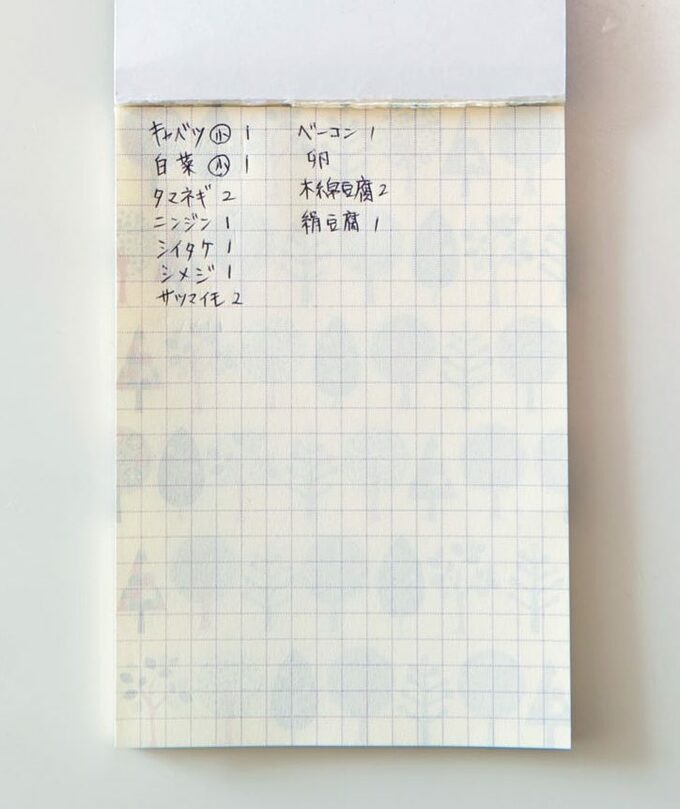 キャベツ ㊛ 1
白菜 ㊛ 1
タマネギ 2
ニンジン 1
シイタケ 1
シメジ 1
サツマイモ 2
ベーコン 1
卵
木綿豆腐 2
絹豆腐 1